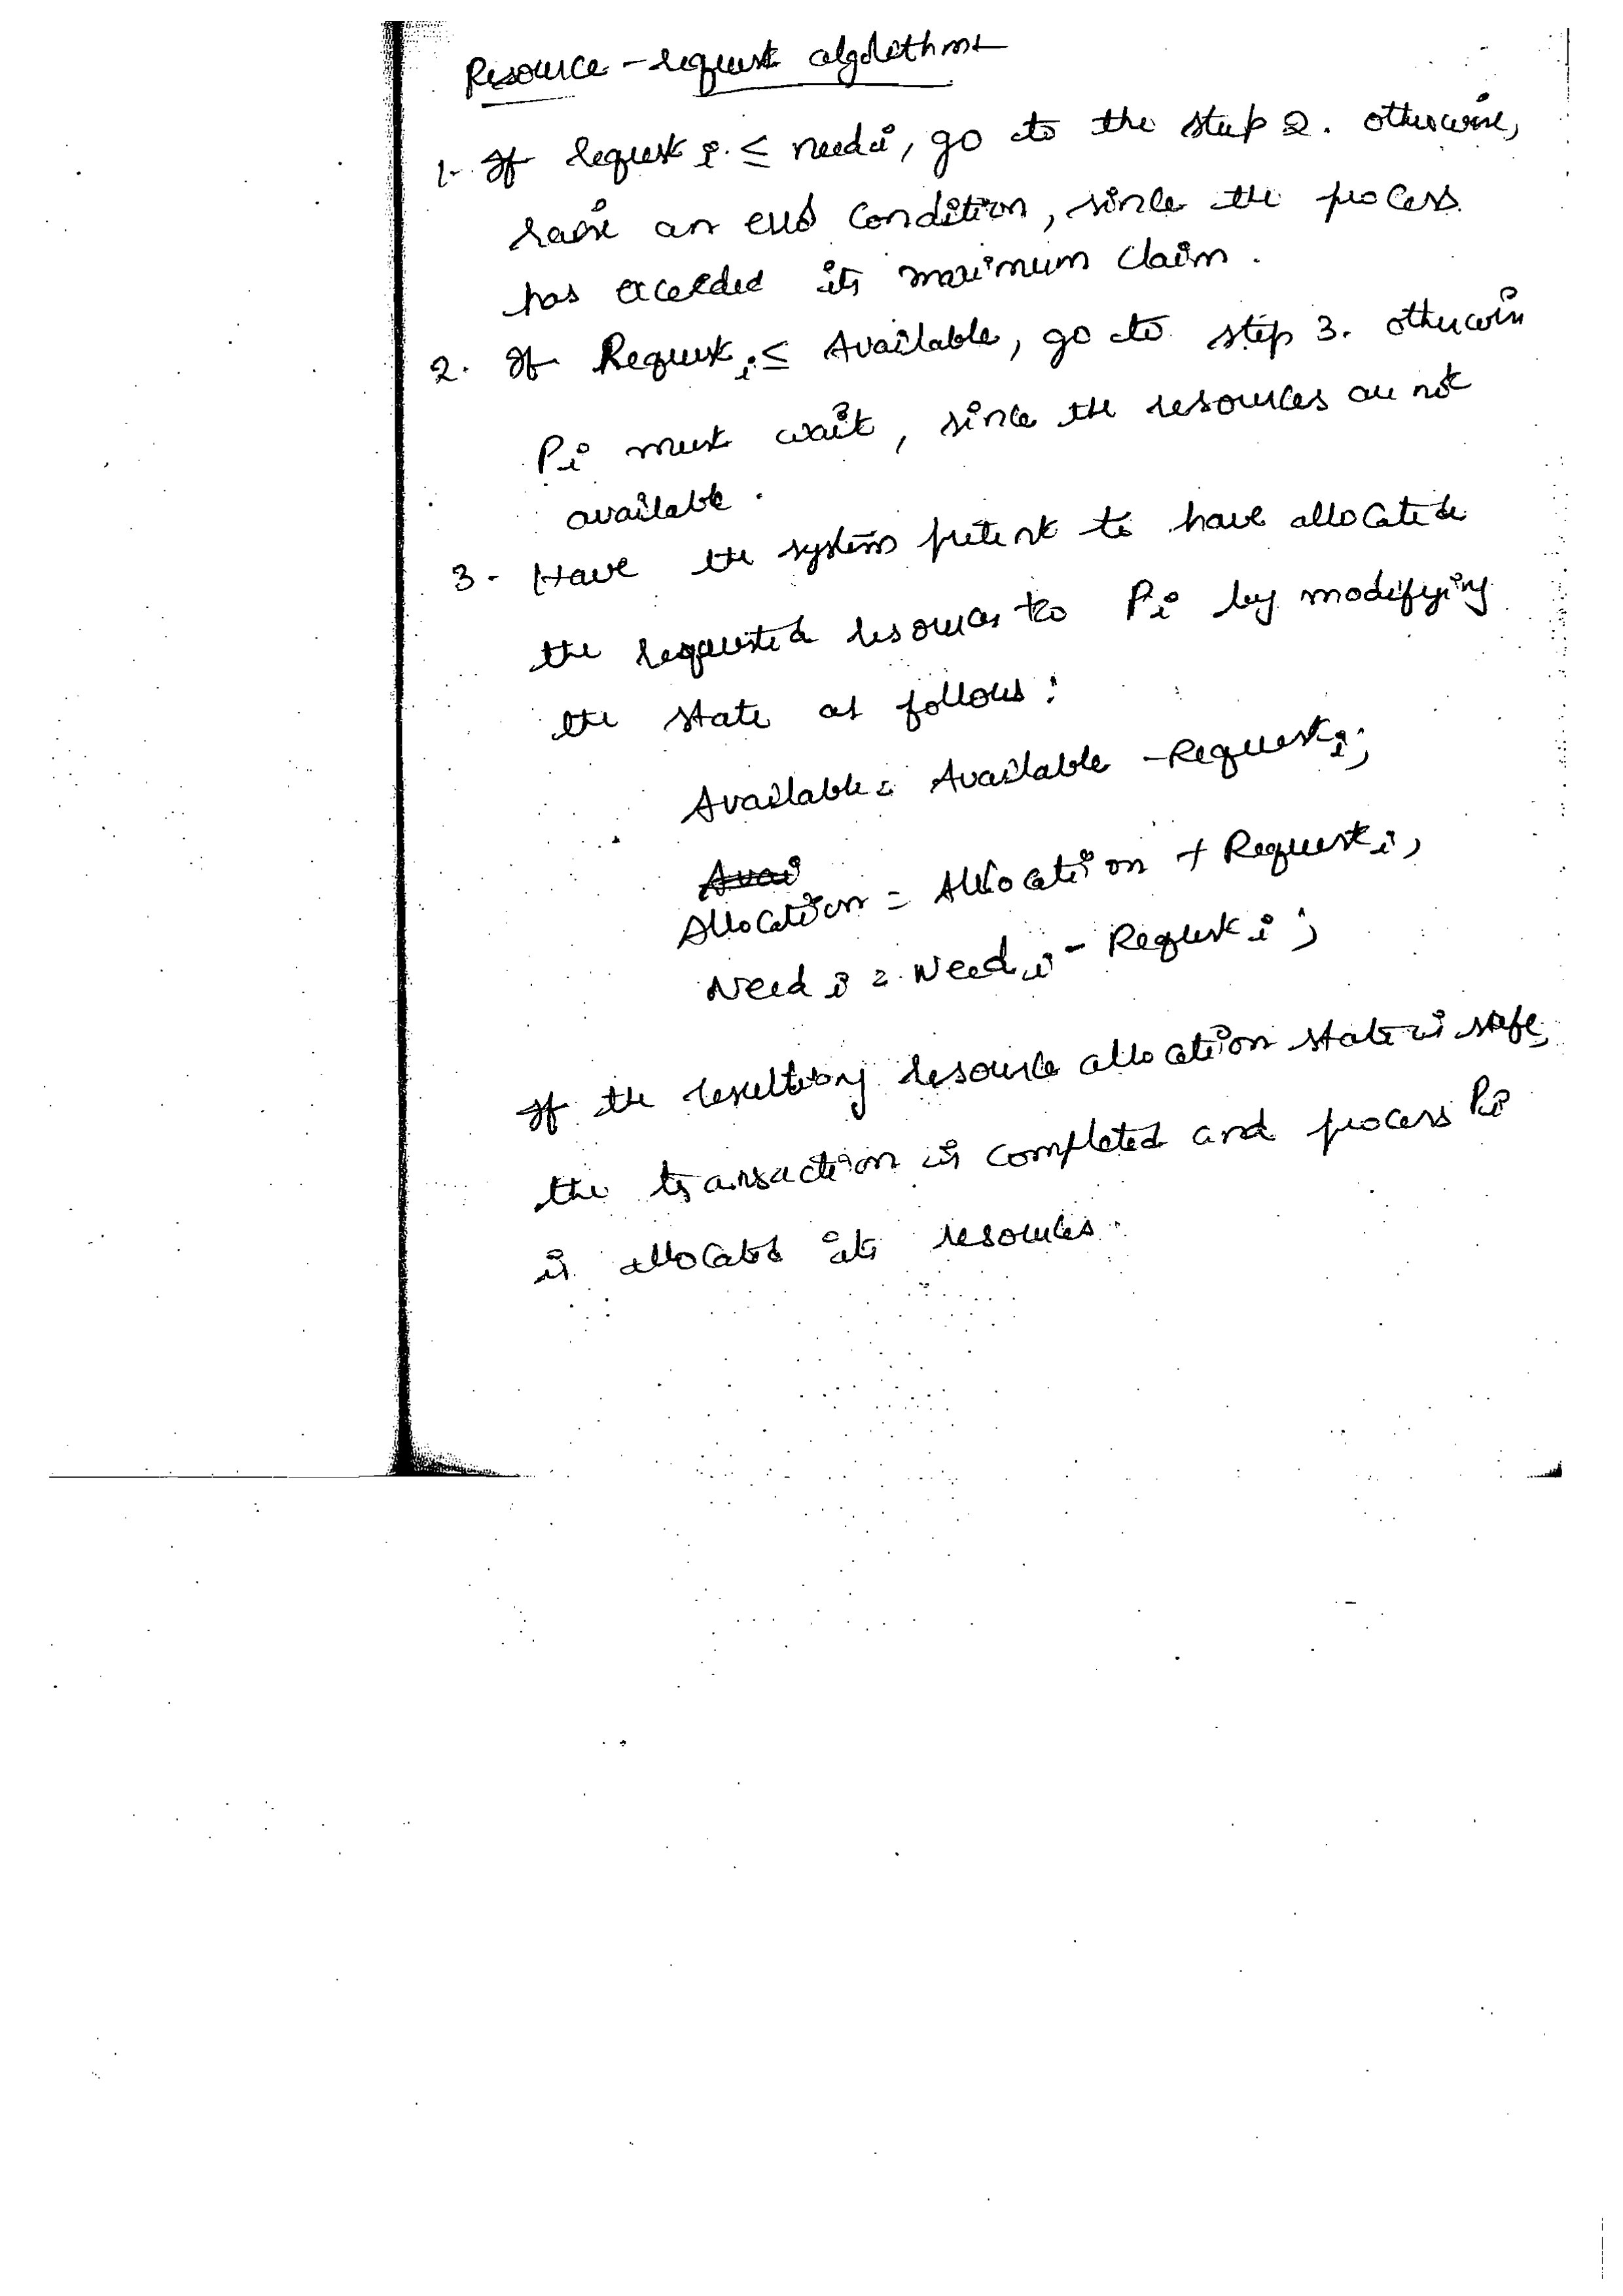 Resource - request algorithm
1. If request i ≤ need i, go to the step 2. otherwise,
raise an error condition, since the process
has exceeded its maximum claim.
2. If Request i ≤ Available, go to step 3. otherwise
Pi must wait, since the resources are not
available.
3. Have the system pretent to have allocated
the requested resources to Pi by modifying
the state as follows:
Available = Available - Request i;
Avai
Allocation = Allocation + Request i,
Need i = Need i - Request i;
If the resulting resource allocation state is safe,
the transaction is completed and process Pi
is allocated its resources.